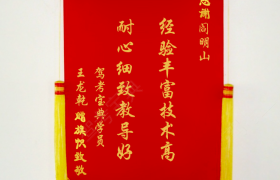 感谢阎明山
经验丰富技术高
耐心细致教导好
驾考宝典学员
王龙乾赠旗帜致敬